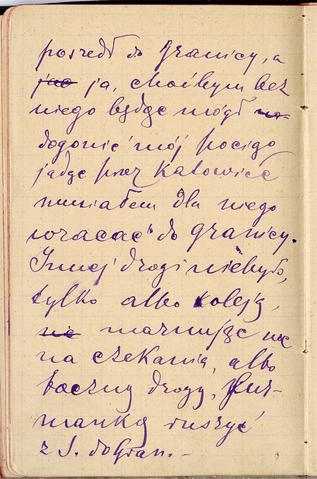 poszedł do Granicy, a
ja, choćbym bez
niego będąc mógł
dogonić mój pociąg
jadąc przez Katowice
musiałem dla niego
wracać do granicy.
Innej drogi niebyło,
tylko albo koleją,
marnując noc
na czekania, albo
boczną drogą, fur-
manką ruszyć
z S. do Gran. –